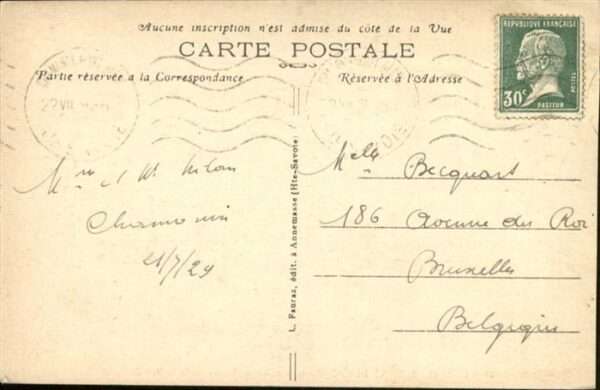 Aucune inscription n'est admise du côté de la Vue
CARTE POSTALE
Partie réservée a la Correspondance
Réservée à l'Adresse
RÉPUBLIQUE FRANÇAISE
POSTES
30c
PASTEUR
22 VII
Mme et M
Chamonix
21/7/29
L. Fauraz, édit. à Annemasse (Hte-Savoie)
Melle Becquart
186 Avenue du Roi
Bruxelles
Belgique